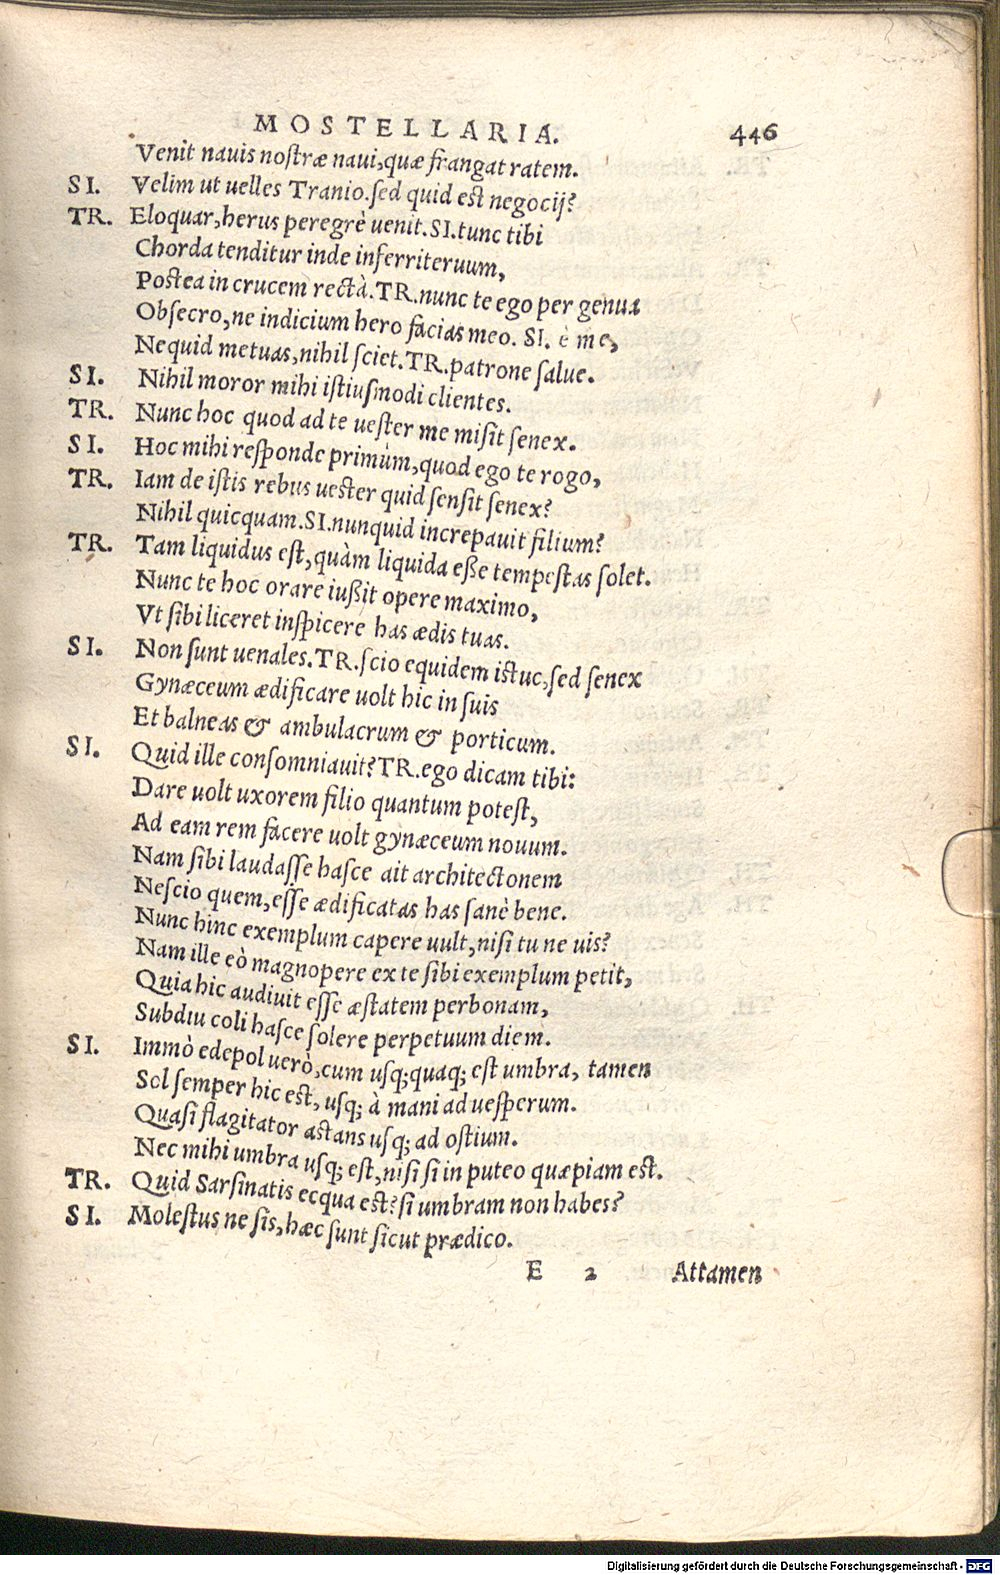 MOSTELLARIA. 446
Venit nauis nostræ naui,quæ frangat ratem.
SI. Velim ut uelles Tranio.sed quid est negocij?
TR. Eloquar,herus peregrè uenit.SI.tunc tibi
Chorda tenditur inde inferriteruum,
Postea in crucem rectà.TR.nunc te ego per genua
Obsecro,ne indicium hero facias meo. SI. è me,
Nequid metuas,nihil sciet.TR.patrone salue.
SI. Nihil moror mihi istiusmodi clientes.
TR. Nunc hoc quod ad te uester me misit senex.
SI. Hoc mihi responde primùm,quod ego te rogo,
TR. Iam de istis rebus uester quid sensit senex?
Nihil quicquam.SI.nunquid increpauit filium?
TR. Tam liquidus est,quàm liquida esse tempestas solet.
Nunc te hoc orare iußit opere maximo,
Vt sibi liceret inspicere has ædis tuas.
SI. Non sunt uenales.TR.scio equidem istuc,sed senex
Gynæceum ædificare uolt hic in suis
Et balneas & ambulacrum & porticum.
SI. Quid ille consomniauit?TR.ego dicam tibi:
Dare uolt uxorem filio quantum potest,
Ad eam rem facere uolt gynæceum nouum.
Nam sibi laudasse hasce ait architectonem
Nescio quem,esse ædificatas has sanè bene.
Nunc hinc exemplum capere uult,nisi tu ne uis?
Nam ille eò magnopere ex te sibi exemplum petit,
Quia hic audiuit esse æstatem perbonam,
Subdiu coli hasce solere perpetuum diem.
SI. Immò edepol uerò,cum usq;quaq; est umbra, tamen
Sol semper hic est, usq; à mani ad uesperum.
Quasi flagitator astans usq; ad ostium.
Nec mihi umbra usq; est,nisi si in puteo quæpiam est.
TR. Quid Sarsinatis ecqua est?si umbram non habes?
SI. Molestus ne sis,hæc sunt sicut prædico.
E 2 Attamen
Digitalisierung gefördert durch die Deutsche Forschungsgemeinschaft - DFG